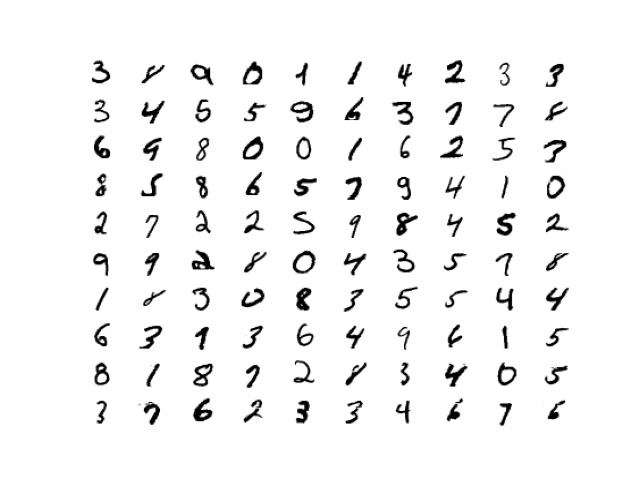 3 8 9 0 1 1 4 2 3 3
3 4 5 5 9 6 3 7 7 8
6 9 8 0 0 1 6 2 5 3
8 5 8 6 5 7 9 4 1 0
2 7 2 2 5 9 8 4 5 2
9 9 2 8 0 4 3 5 7 8
1 8 3 0 8 3 5 5 4 4
6 3 1 3 6 4 9 6 1 5
8 1 8 7 2 8 3 4 0 5
3 7 6 2 3 3 4 6 7 6